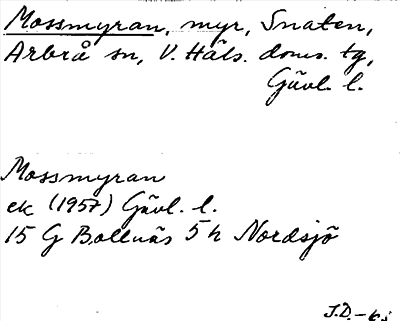 Mossmyran, myr, Snaten,
Arbrå sn, V. Häls. doms. tg,
Gävl. l.
Mossmyran
ek (1957) Gävl. l.
15 G Bollnäs 5 h Nordsjö
J.D.-ki